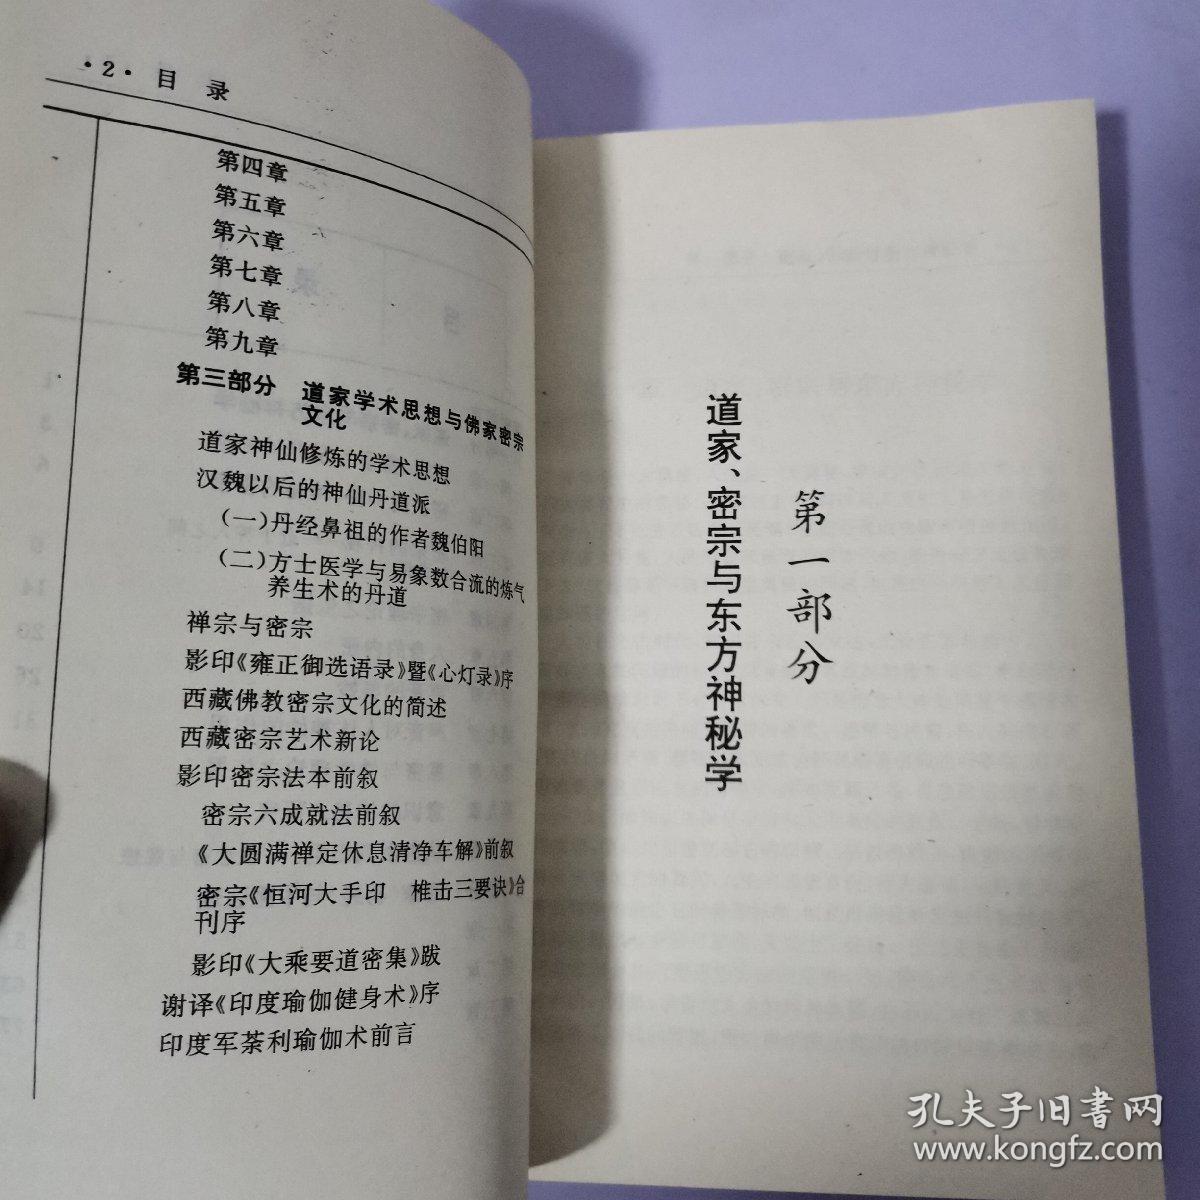 ·2· 目 录
第四章
第五章
第六章
第七章
第八章
第九章
第三部分 道家学术思想与佛家密宗
文化
道家神仙修炼的学术思想
汉魏以后的神仙丹道派
(一)丹经鼻祖的作者魏伯阳
(二)方士医学与易象数合流的炼气
养生术的丹道
禅宗与密宗
影印《雍正御选语录》暨《心灯录》序
西藏佛教密宗文化的简述
西藏密宗艺术新论
影印密宗法本前叙
密宗六成就法前叙
《大圆满禅定休息清净车解》前叙
密宗《恒河大手印 椎击三要诀》合
刊序
影印《大乘要道密集》跋
谢译《印度瑜伽健身术》序
印度军荼利瑜伽术前言
第一部分
道家、密宗与东方神秘学
孔夫子旧书网
www.kongfz.com